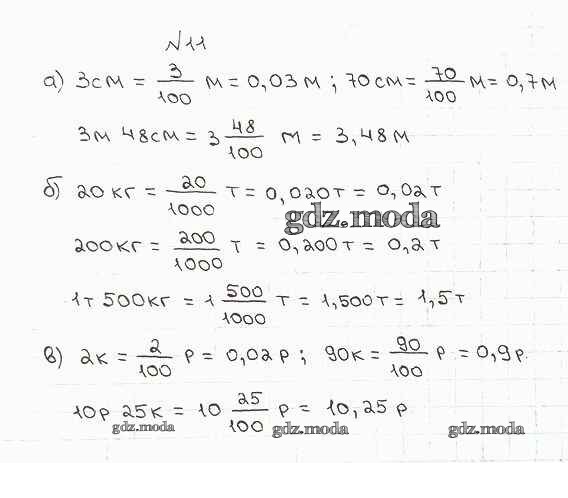 №11
а) 3см = 3/100 м = 0,03м ; 70см = 70/100 м = 0,7м
3м 48см = 3 48/100 м = 3,48м
б) 20кг = 20/1000 т = 0,020т = 0,02т
gdz.moda
200кг = 200/1000 т = 0,200т = 0,2т
1т 500кг = 1 500/1000 т = 1,500т = 1,5т
в) 2к = 2/100 р = 0,02р ; 90к = 90/100 р = 0,9р.
10р 25к = 10 25/100 р = 10,25р
gdz.moda gdz.moda gdz.moda